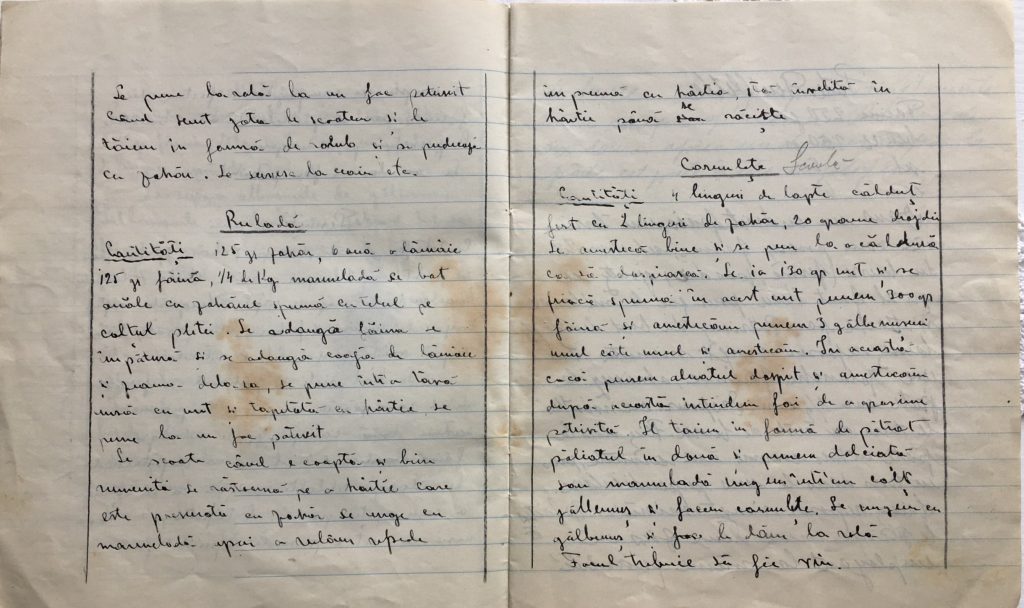 Se pune la rolă la un foc potrivit
când sunt gata le scoatem și le
tăiem in formă de romb și se pudrează
cu zahăr. Se servesc la ceai etc.
Ruladă
Cantități 125 gr zahăr, 6 ouă o lămâie
125 gr făină, 1/4 de Kg marmeladă se bat
ouăle cu zahărul spumă cu telul pe
colțul plitei. Se adaugă făina se
împătură și se adaugă coaja de lămâie
și zeama dela ea, se pune într'o tavă
unsă cu unt și tapetată cu hârtie, se
pune la un foc potrivit
Se scoate când e coaptă și bine
rumenită se răstoarnă pe o hârtie care
este presărată cu zahăr se unge cu
marmeladă apoi o rulăm repede
împreună cu hârtia, stă învelită în
hârtie până se răcește
Cornulețe
Cantități 4 linguri de lapte călduț
fert cu 2 linguri de zahăr, 20 grame drojdie
Se amestecă bine și se pune la o căldură
ca să dospească. Se ia 130 gr unt și se
freacă spumă în acest unt punem 300 gr
făină și amestecăm punem 3 gălbenușuri
unul câte unul și amestecăm. In această
cocă punem aluatul dospit și amestecăm
după aceasta intindem foi de o grosime
potrivită Il tăiem in formă de pătrat
în două și punem dulceață
sau marmeladă ungem colț
gălbenuș și facem cornulețe. Se ungem cu
gălbenuș și le dăm la rolă
Focul trebuie să fie viu.